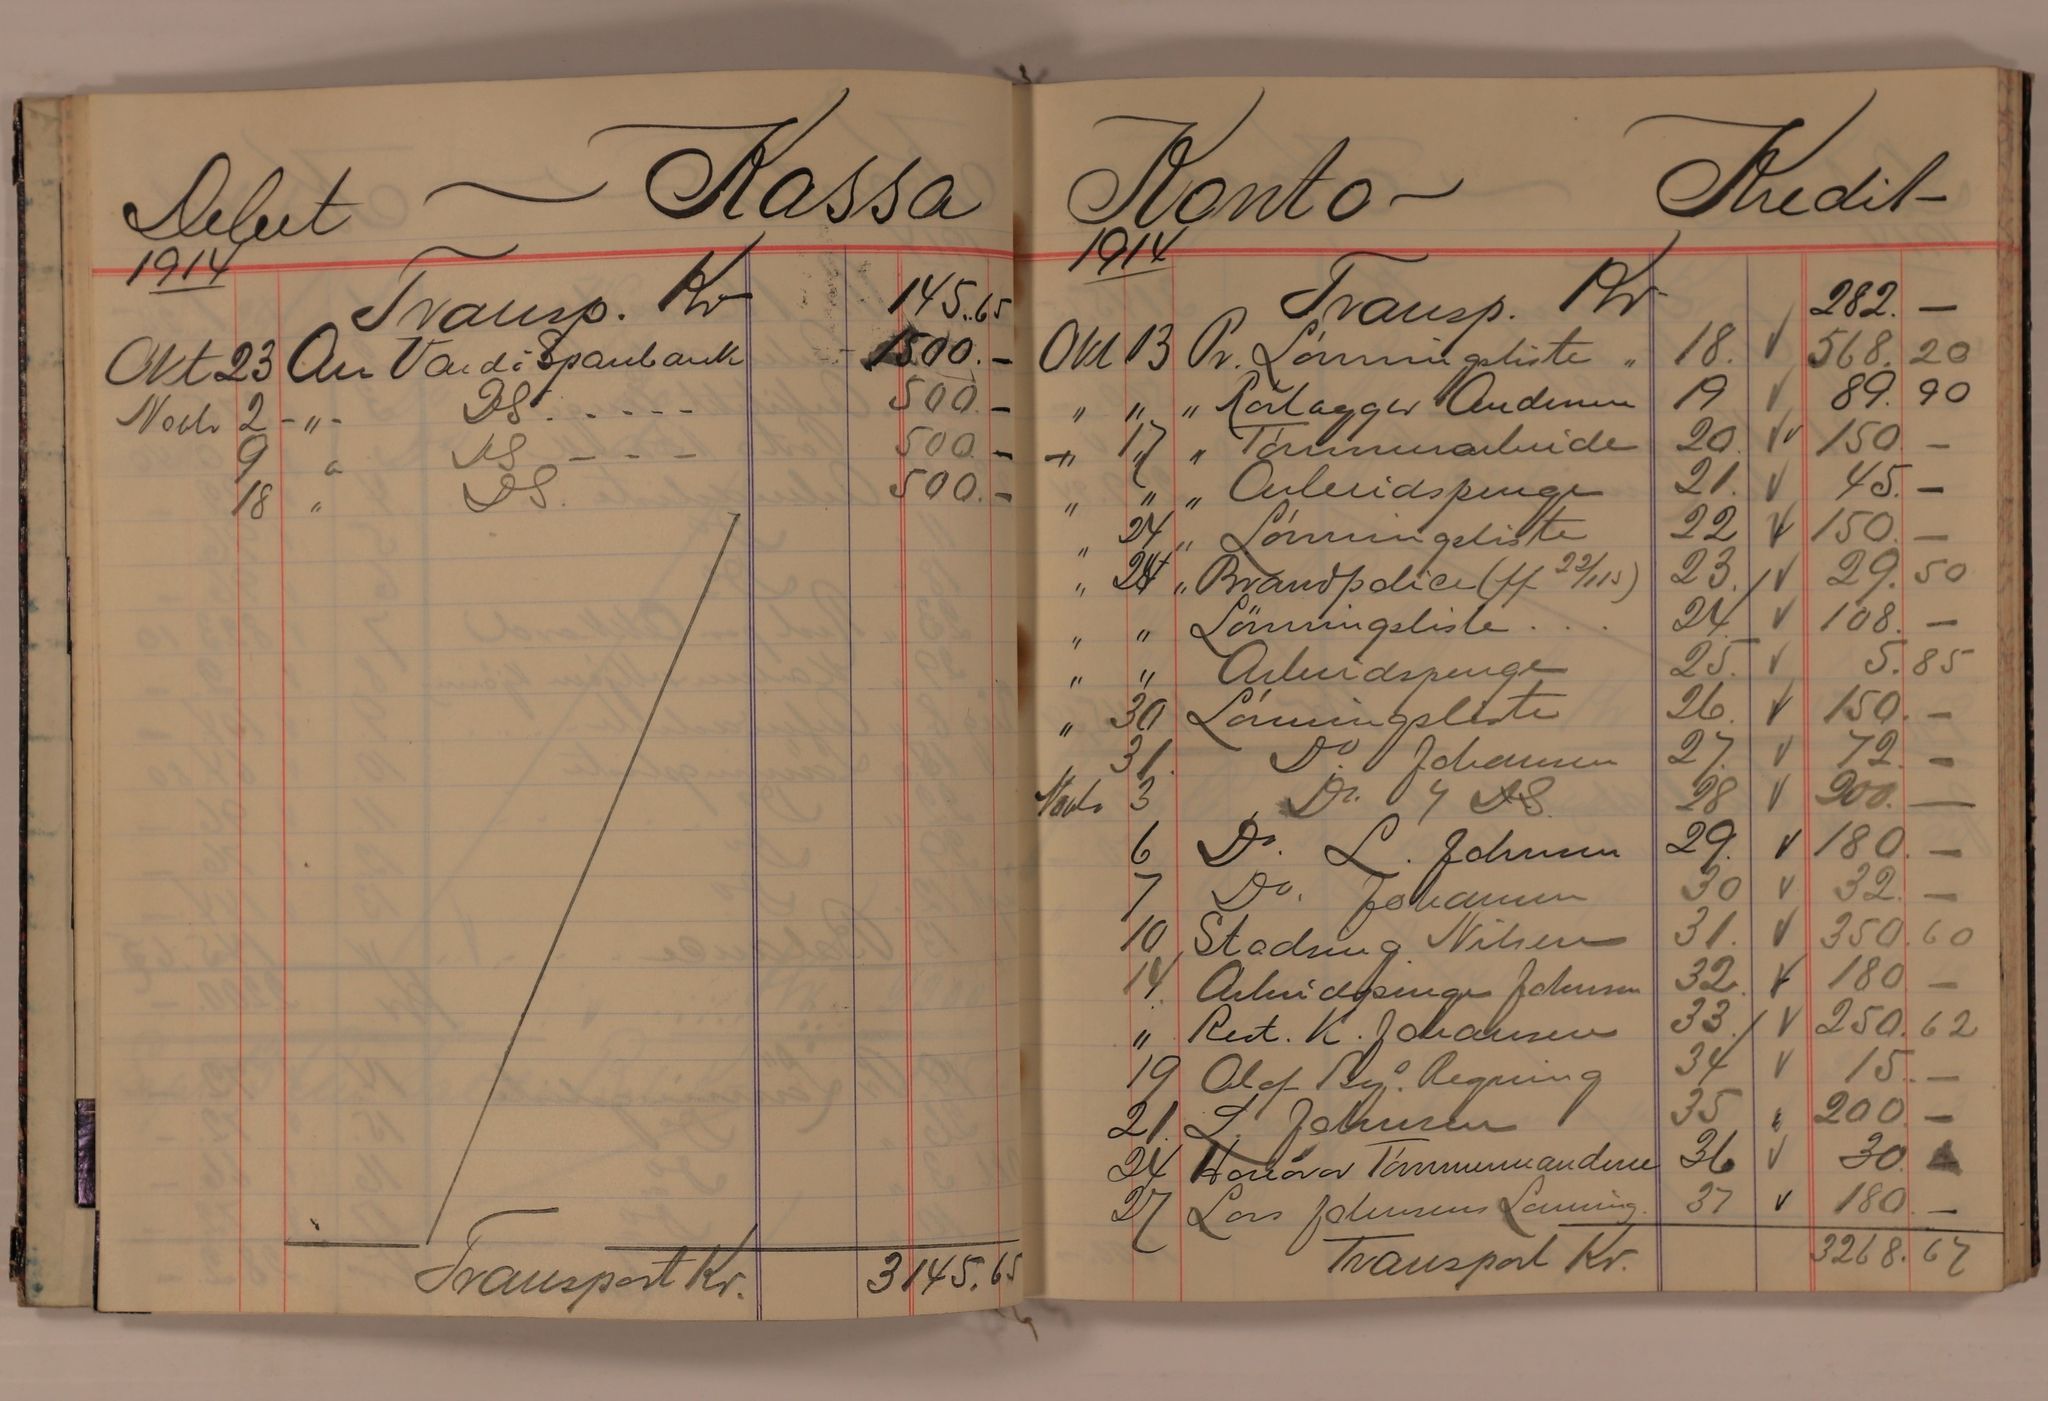 Debet – Kassa
1914
Transp. Kr 145.65
Okt 23 An Vardö Sparebank 1500.-
Novbr 2 - " - Do. - - - - 500.-
9 " Do - - - 500.-
18 " Do. 500.-
Transport Kr. 3145.65
Konto – Kredit –
1914
Transp. Kr 282. —
Okt 13 Pr. Lönningsliste " 18. v 568. 20
" " " Andersen 19 v 89. 90
" 17 " Tömmerarbeide 20. v 150 -
" " " Arbeidspenge 21. v 45. -
" 24 " Lönningsliste 22 v 150. -
" 24 " Brandpolice (ff 22/1 15) 23. v 29. 50
" " Lönningsliste . . . 24 v 108. -
" " Arbeidspenge 25. v 5. 85
" 30 Lönningsliste 26. v 150. -
31. Do. Johansen 27. v 72. -
Novbr 3 Do. Do. 28 v 200. —
6 Do. L. Johnsen 29. v 180. -
7 Do. Johansen 30 v 32. -
10 Stadsing. Nilsen 31. v 350. 60
14. Arbeidspenge Johnsen 32. v 180 -
" Rest. K. Johansen 33. v 250. 62
19 Olaf Regning 34 v 15. -
21. L. Johnsen 35 " 200. -
24 Tömmermændene 36 v 30.
27 Lars Johnsens Lönning. 37 v 180. -
Transport Kr. 3268. 67